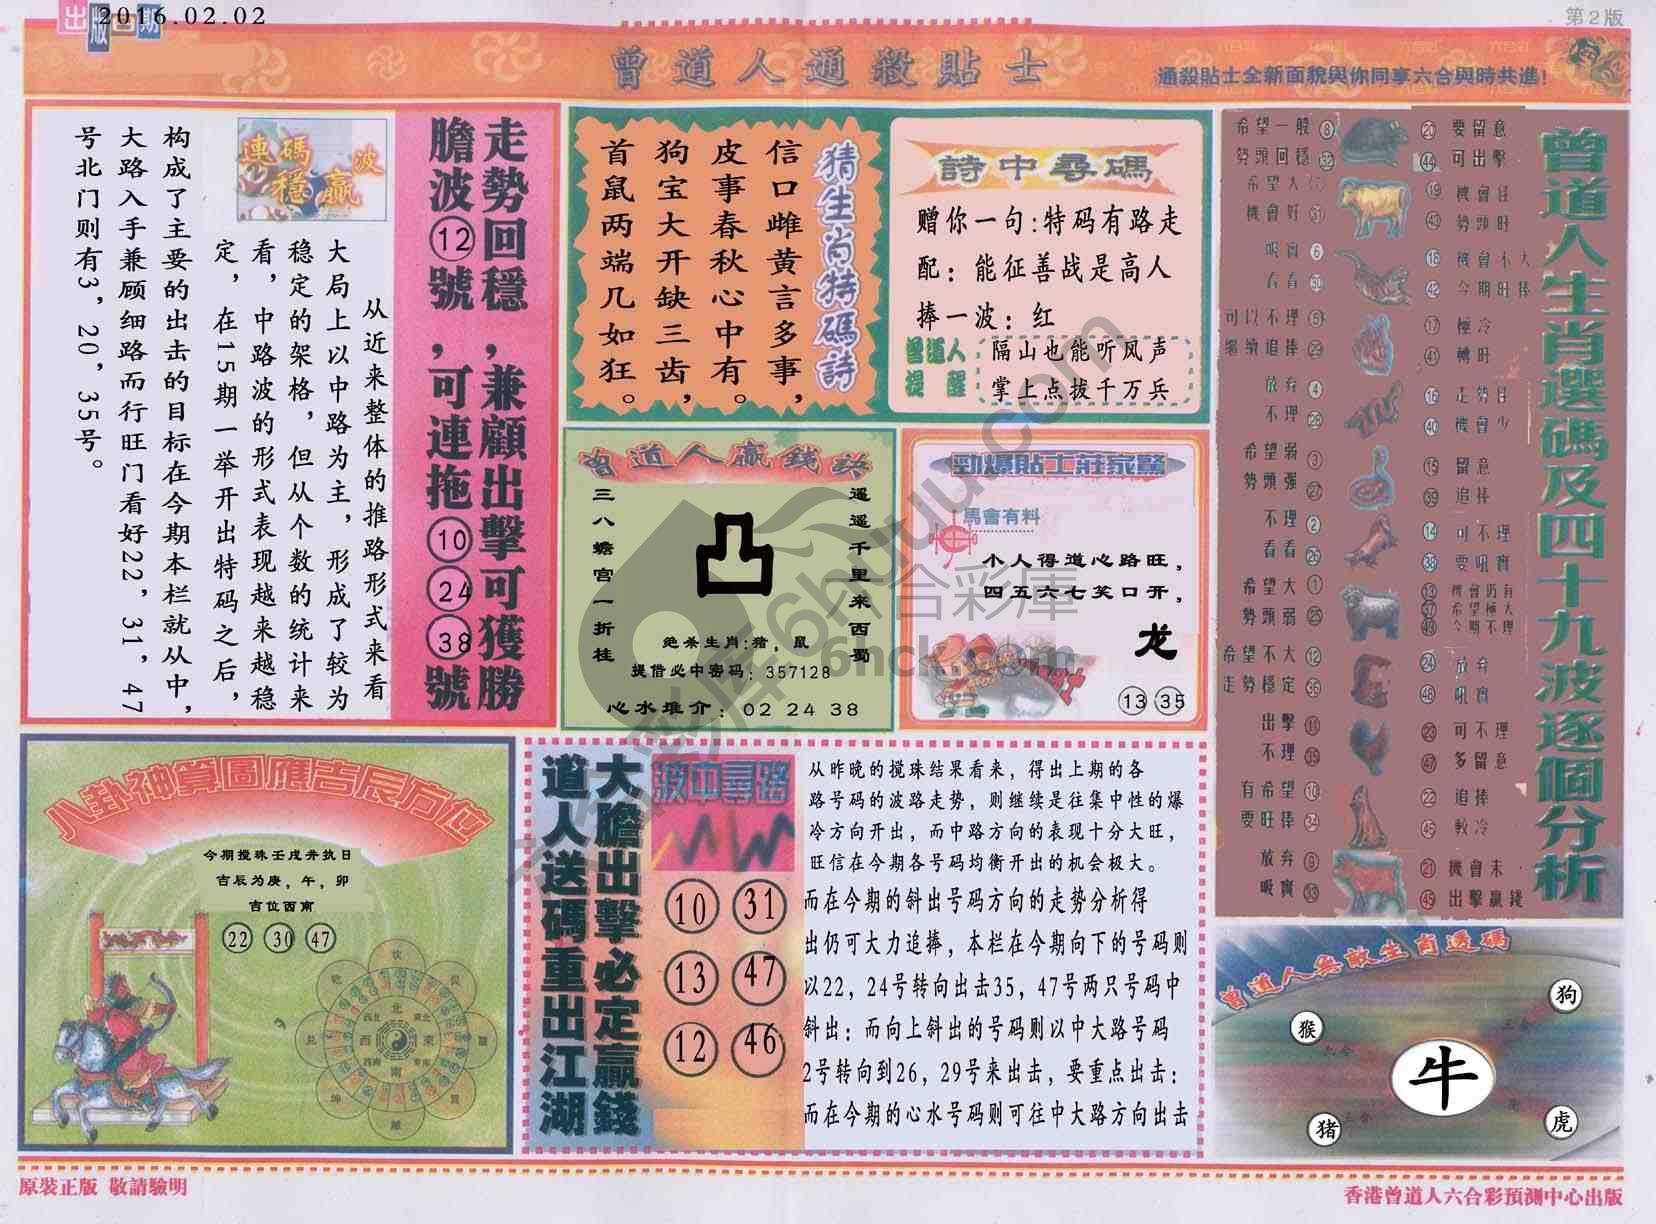 出版日期
2016.02.02
第2版
曾道人通殺貼士
通殺貼士全新面貌與你同享六合與時共進!
走勢回穩,兼顧出擊可獲勝
膽波⑫號,可連拖⑩㉔㊳號
連碼穩贏波
从近来整体的推路形式来看
大局上以中路为主，形成了较为
稳定的架格，但从个数的统计来
看，中路波的形式表现越来越稳
定，在15期一举开出特码之后，
构成了主要的出击的目标在今期本栏就从中，
大路入手兼顾细路而行旺门看好22，31，47
号北门则有3，20，35号。
猜生肖特碼詩
信口雌黄言多事，
皮事春秋心中有。
狗宝大开缺三齿，
首鼠两端几如狂。
詩中尋碼
赠你一句:特码有路走
配：能征善战是高人
捧一波：红
曾道人提醒
隔山也能听风声
掌上点拔千万兵
曾道人贏錢訣
遥遥千里来西蜀
三八蟾宫一折桂
凸
绝杀生肖:猪，鼠
提借必中密码：357128
心水堆介：02 24 38
勁爆貼士莊家驚
馬會有料
个人得道心路旺，
四五六七笑口开，
龙
13 35
曾道人生肖選碼及四十九波逐個分析
希望一般 8
20 要留意
勢頭回穩 32
44 可出擊
希望大
19 機會旺
機會好 31
43 勢頭旺
吸實 6
18 機會不大
看看 30
42 今期旺捧
可以不理 5
17 極冷
繼續追捧 29
41 轉旺
放弃 4
16 走勢旺
不理 28
40 機會少
希望弱 3
15 留意
勢頭强 27
39 追捧
不理 2
14 可不理
看看 26
38 要吼實
希望大 1
13 機會仍有
37 希望極大
勢頭弱 25
49 今期不理
希望不大 12
24 放弃
走勢穩定 36
48 吼實
出擊 11
23 可不理
不理 35
47 多留意
有希望 10
22 追捧
要旺捧 34
46 軟冷
放弃 9
21 機會未
吸實 33
45 出擊贏錢
八卦神算圖應吉辰方位
今期搅珠壬戌并执日
吉辰为庚，午，卯
吉位西南
22 30 47
大膽出擊必定贏錢
道人送碼重出江湖
波中尋路
10 31
13 47
12 46
从昨晚的搅珠结果看来，得出上期的各
路号码的波路走势，则继续是往集中性的爆
冷方向开出，而中路方向的表现十分大旺，
旺信在今期各号码均衡开出的机会极大。
而在今期的斜出号码方向的走势分析得
出仍可大力追捧，本栏在今期向下的号码则
以22，24号转向出击35，47号两只号码中
斜出：而向上斜出的号码则以中大路号码
2号转向到26，29号来出击，要重点出击：
而在今期的心水号码则可往中大路方向出击
曾道人無敵生肖透碼
狗
猴
牛
猪
虎
原裝正版 敬請驗明
香港曾道人六合彩預測中心出版
六合彩庫
6hck.com